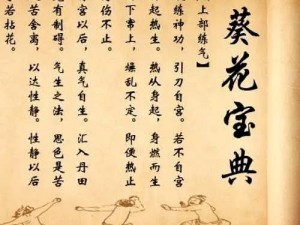 葵花宝典
上部练气】
练神功，引刀自宫。若不自宫
起热生。热从身起，身燃而生
下常上，乱不定。即便热止
伤不止。
宫以后，真气自生。汇入丹田
有制碍。气生之法，思色是苦
苦舍离，以达性静。性静以后
若枯花。